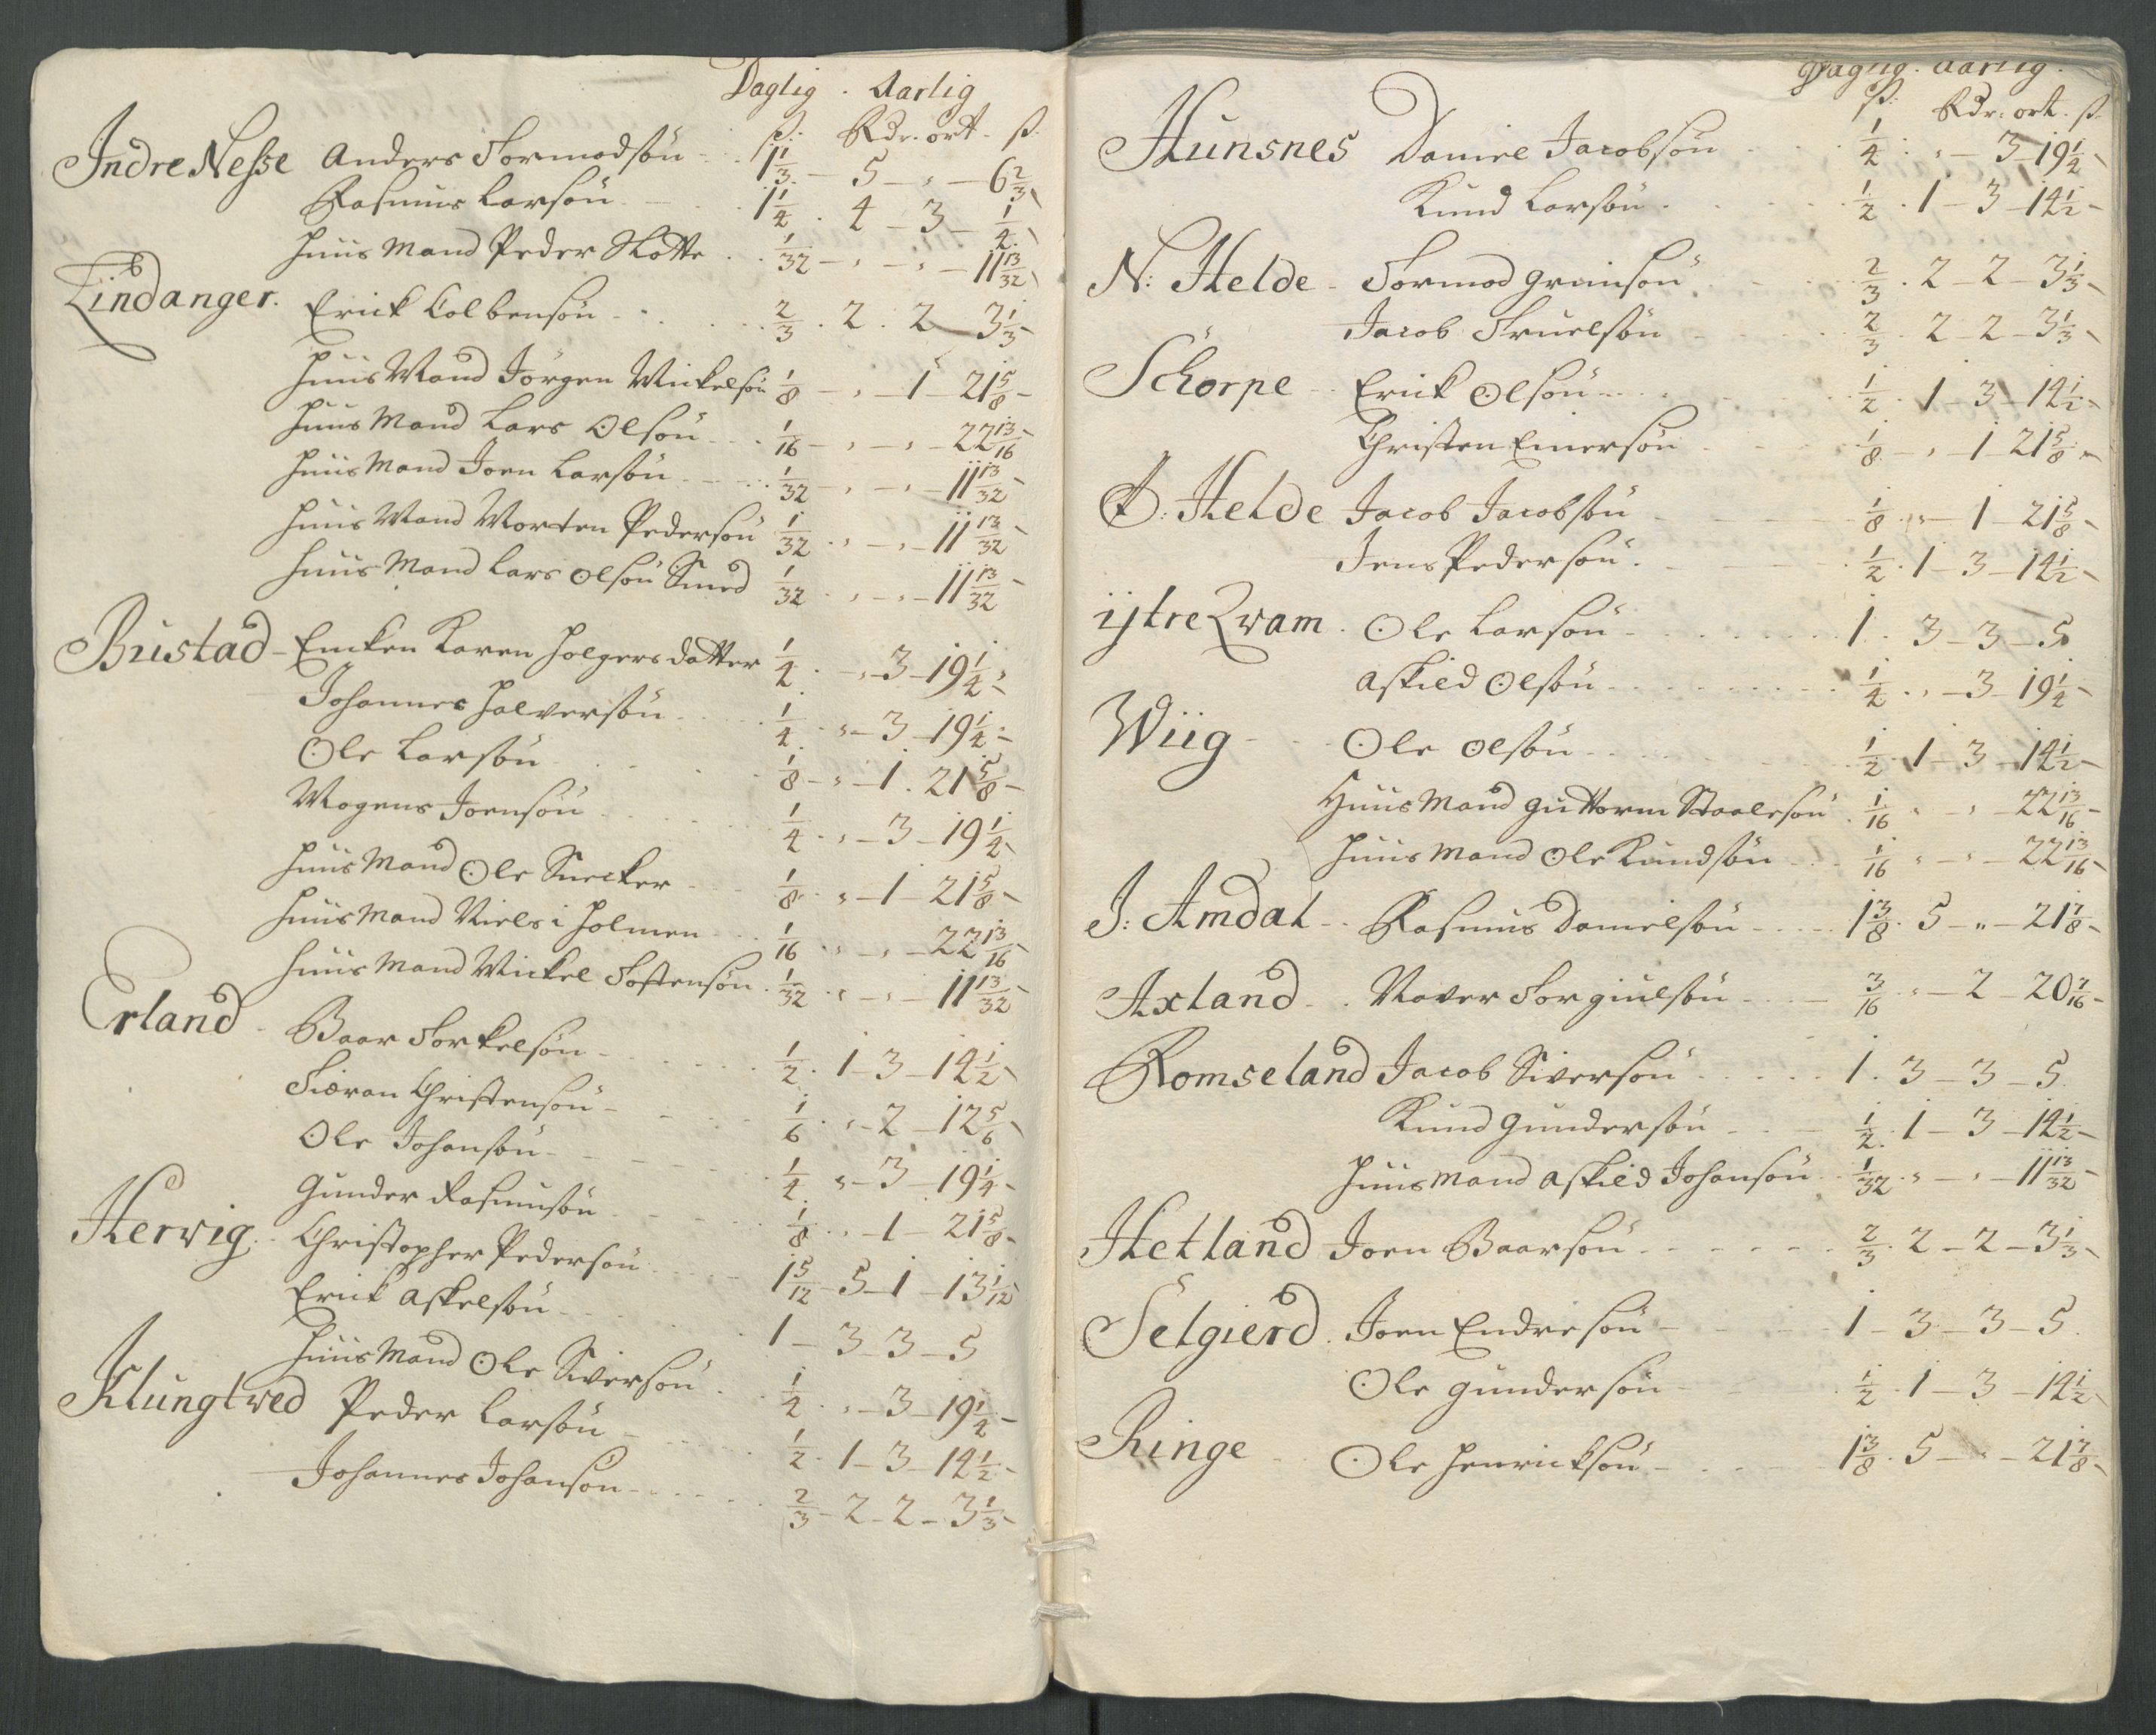 Daglig . Aarlig
ß: Rdr. ort. ß.
Indre Nesse Anders Tormodsøn 1 1/3 - 5 - " - 6 2/3
Rasmus Larsøn 1 1/4 . 4 - 3 - 1/4
Huus Mand Peder Skotte 1/32 - " - " - 11 13/32
Lindanger. Erick Colbensøn 2/3 . 2 . 2 - 3 1/3
Huus Mand Jørgen Mickelsøn 1/8 - " - 1 - 21 5/8
Huus Mand Lars Olsøn 1/16 - " - " - 22 13/16
Huus Mand Joen Larsøn 1/32 - " - " - 11 13/32
Huus Mand Morten Pedersøn 1/32 . " - " - 11 13/32
Huus Mand Lars Olsøn Smed 1/32 . " - " - 11 13/32
Bustad - Encken Karen Holgersdatter 1/4 . " - 3 - 19 1/4
Johannes Halversøn 1/4 . " - 3 - 19 1/4
Ole Larsøn 1/8 - " - 1 . 21 5/8
Mogens Joensøn 1/4 . " - 3 - 19 1/4
Huus Mand Ole Snecker 1/8 . " - 1 - 21 5/8
Huus Mand Niels i Holmen 1/16 . " - " - 22 13/16
Huus Mand Mickel Tostensøn 1/32 . " - " - 11 13/32
Erland - Baar Torkelsøn 1/2 . 1 - 3 - 14 1/2
Siøran Christensøn 1/6 . " - 2 - 12 5/6
Ole Johansøn 1/4 " - 3 - 19 1/4
Gunder Rasmusøn 1/8 . " - 1 - 21 5/8
Hervig. Christopher Pedersøn 1 5/12 - 5 - 1 - 13 1/12
Erick Askelsøn 1 - 3 - 3 - 5
Huus Mand Ole Siversøn 1/4 . " - 3 - 19 1/4
Klungtved Peder Larsøn 1/2 . 1 - 3 - 14 1/2
Johannes Johansøn 2/3 - 2 - 2 - 3 1/3
Daglig . Aarlig.
ß: Rdr. ort. ß.
Hunsnes Daniel Jacobsøn 1/4 . " - 3 - 19 1/4
Knud Larsøn 1/2 . 1 - 3 - 14 1/2
N: Helde - Tormod Greinsøn 2/3 . 2 - 2 - 3 1/3
Jacob Truelsøn 2/3 . 2 - 2 - 3 1/3
Schorpe - Erick Olsøn 1/2 . 1 - 3 - 14 1/2
Christen Einersøn 1/8 - " - 1 - 21 5/8
Ø: Helde Jacob Jacobsøn 1/8 . " - 1 - 21 5/8
Jens Pedersøn 1/2 . 1 - 3 - 14 1/2
ijtre Qvam. Ole Larsøn 1 . 3 - 3 - 5
Askild Olsøn 1/4 . " - 3 - 19 1/4
Wiig - Ole Olsøn 1/2 . 1 - 3 - 14 1/2
Huus Mand Guttorm Staalesøn 1/16 " - " - 22 13/16
Huus Mand Ole Knudsøn 1/16 " - " - 22 13/16
J: Amdal - Rasmus Danielsøn 1 3/8 . 5 - " - 21 7/8
Axland - Naver Torgiulsøn 3/16 " - 2 - 20 7/16
Romseland Jacob Siversøn 1 . 3 - 3 - 5
Knud Gundersøn 1/2 . 1 - 3 - 14 1/2
Huus Mand Askild Johansøn 1/32 . " - " - 11 13/32
Hetland Joen Baarsøn 2/3 . 2 - 2 - 3 1/3
Selgierd. Joen Endresøn 1 - 3 - 3 - 5.
Ole Gundersøn 1/2 . 1 - 3 - 14 1/2
Ringe Ole Henricksøn 1 3/8 . 5 - " - 21 7/8